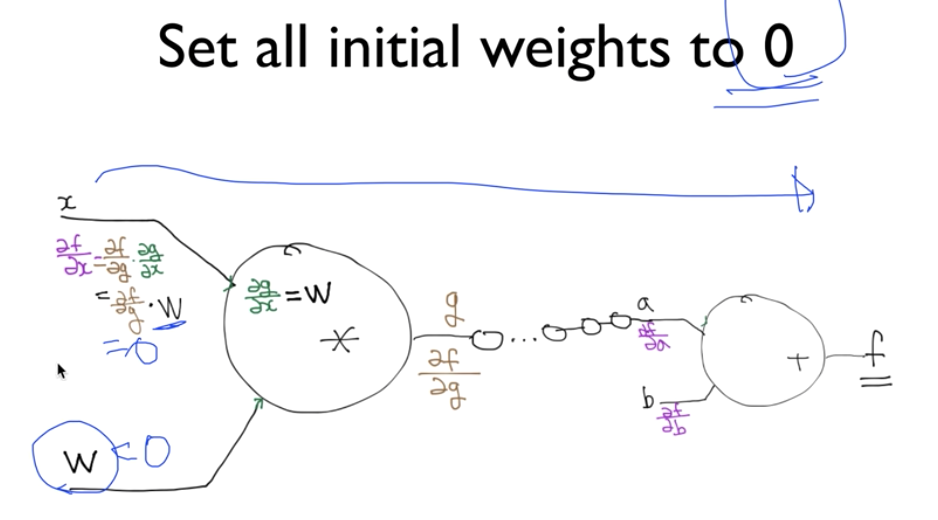 Set all initial weights to 0
x
∂f/∂x = ∂f/∂g · ∂g/∂x
= ∂f/∂g · W
= 0
∂g/∂x = W
*
g
∂f/∂g
...
a
∂f/∂a
b
∂f/∂b
+
f
W = 0